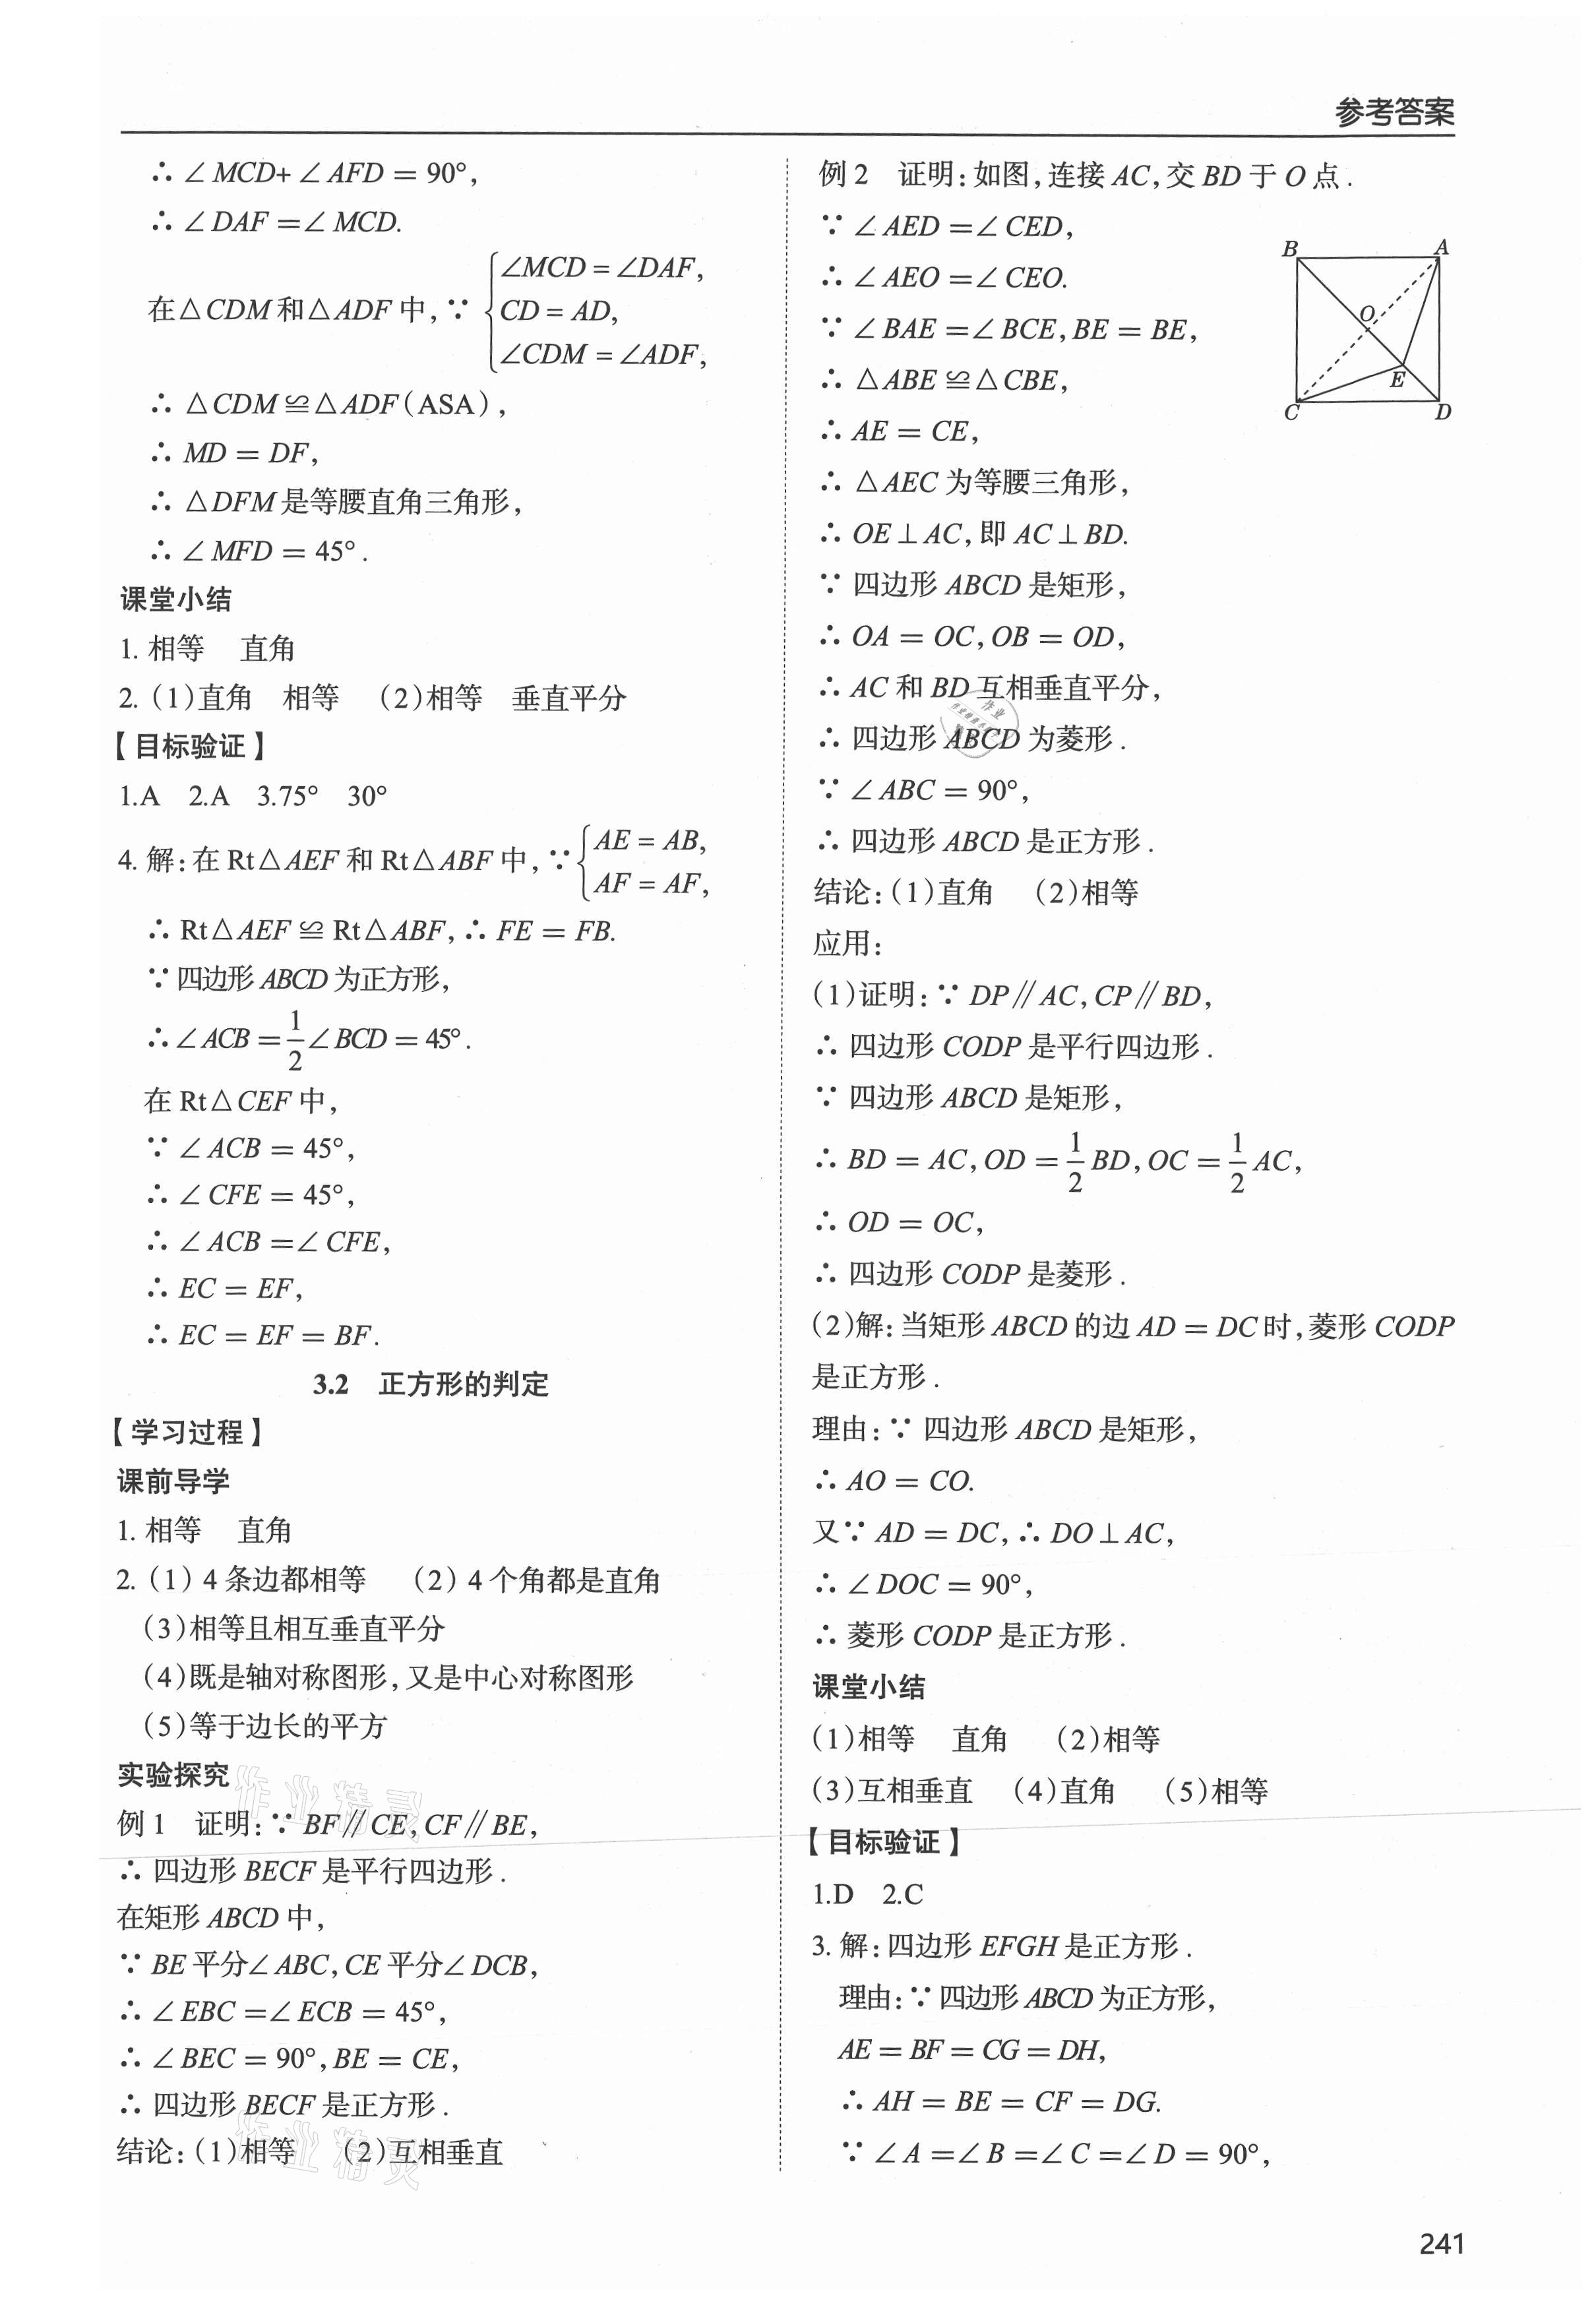 参考答案
∴ ∠MCD+∠AFD = 90°,
∴ ∠DAF =∠MCD.
在△CDM和△ADF中,∵ {∠MCD = ∠DAF,
CD = AD,
∠CDM = ∠ADF,
∴ △CDM≌△ADF(ASA),
∴ MD = DF,
∴ △DFM是等腰直角三角形,
∴ ∠MFD = 45°.
课堂小结
1. 相等 直角
2. (1)直角 相等 (2)相等 垂直平分
【目标验证】
1.A 2.A 3.75° 30°
4. 解:在Rt△AEF和Rt△ABF中,∵ {AE = AB,
AF = AF,
∴ Rt△AEF≌Rt△ABF,∴ FE = FB.
∵四边形ABCD为正方形,
∴∠ACB = 1/2 ∠BCD = 45°.
在Rt△CEF中,
∵ ∠ACB = 45°,
∴ ∠CFE = 45°,
∴ ∠ACB =∠CFE,
∴ EC = EF,
∴ EC = EF = BF.
3.2 正方形的判定
【学习过程】
课前导学
1. 相等 直角
2. (1) 4条边都相等 (2) 4个角都是直角
(3)相等且相互垂直平分
(4)既是轴对称图形,又是中心对称图形
(5)等于边长的平方
实验探究
例1 证明:∵ BF∥CE,CF∥BE,
∴ 四边形BECF是平行四边形.
在矩形ABCD中,
∵ BE平分∠ABC,CE平分∠DCB,
∴ ∠EBC =∠ECB = 45°,
∴ ∠BEC = 90°,BE = CE,
∴ 四边形BECF是正方形.
结论:(1)相等 (2)互相垂直
例2 证明:如图,连接AC,交BD于O点.
∵ ∠AED =∠CED,
∴ ∠AEO =∠CEO.
∵ ∠BAE =∠BCE,BE = BE,
∴ △ABE≌△CBE,
∴ AE = CE,
∴ △AEC为等腰三角形,
∴ OE⊥AC,即AC⊥BD.
∵ 四边形ABCD是矩形,
∴ OA = OC,OB = OD,
∴ AC和BD互相垂直平分,
∴ 四边形ABCD为菱形.
∵ ∠ABC = 90°,
∴ 四边形ABCD是正方形.
B A
O
E
C D
结论:(1)直角 (2)相等
应用:
(1)证明:∵ DP∥AC,CP∥BD,
∴ 四边形CODP是平行四边形.
∵ 四边形ABCD是矩形,
∴ BD = AC,OD = 1/2 BD,OC = 1/2 AC,
∴ OD = OC,
∴ 四边形CODP是菱形.
(2)解:当矩形ABCD的边AD = DC时,菱形CODP
是正方形.
理由:∵ 四边形ABCD是矩形,
∴ AO = CO.
又∵ AD = DC,∴ DO⊥AC,
∴ ∠DOC = 90°,
∴ 菱形CODP是正方形.
课堂小结
(1)相等 直角 (2)相等
(3)互相垂直 (4)直角 (5)相等
【目标验证】
1.D 2.C
3. 解:四边形EFGH是正方形.
理由:∵四边形ABCD为正方形,
AE = BF = CG = DH,
∴ AH = BE = CF = DG.
∵ ∠A =∠B =∠C =∠D = 90°,
241
作业精灵
作业精灵